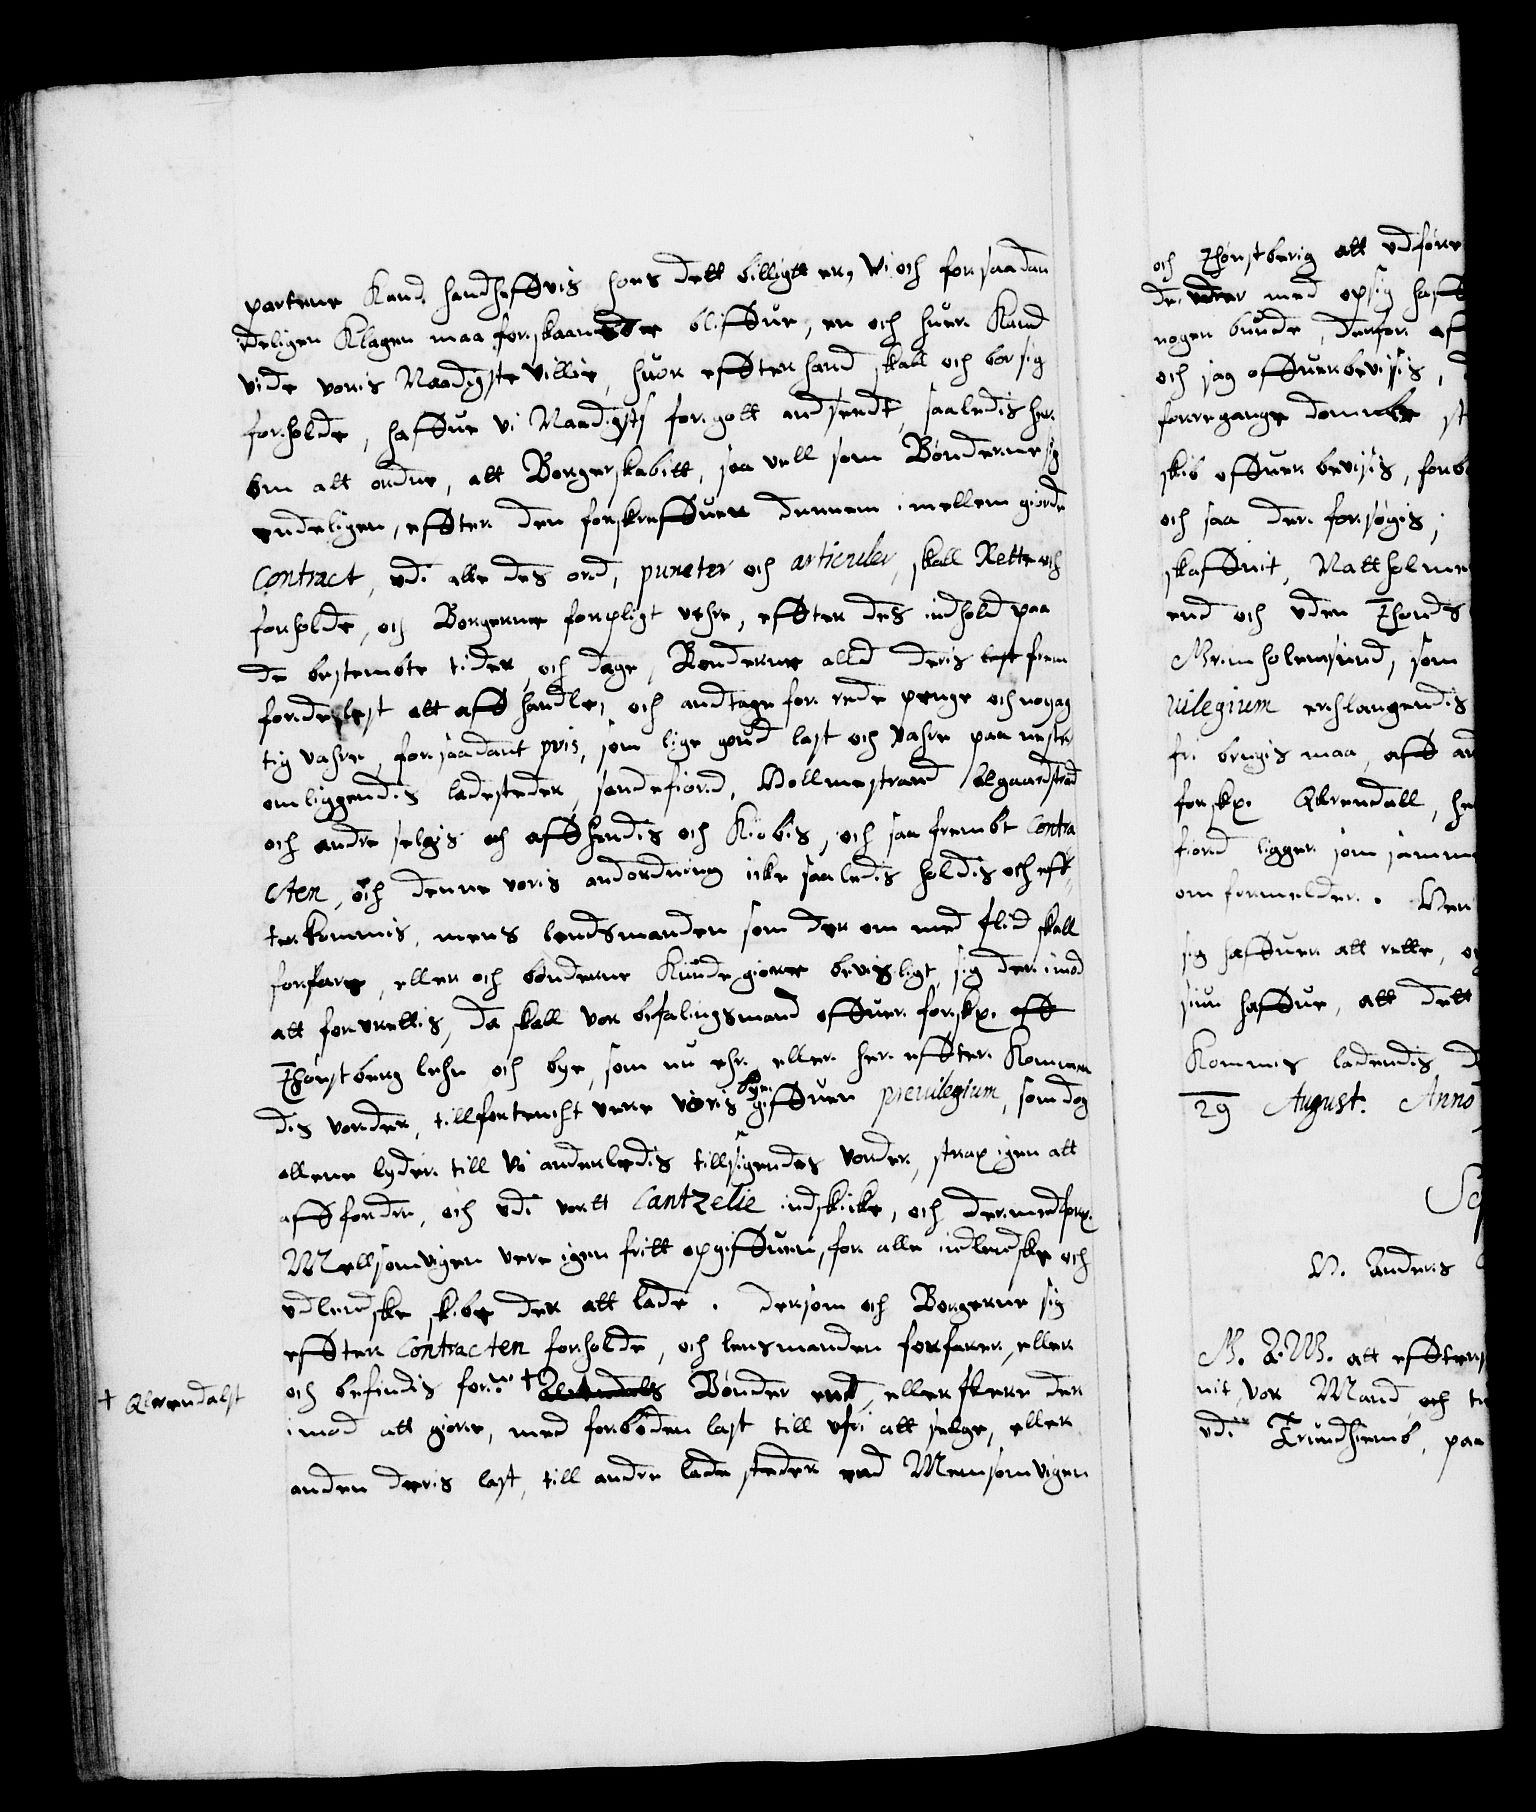 partene Kand handheffuis hoes dett billigtt er, Vi och for saadan
ideligen Klagen maa forskaanedee bliffue, en och huer Kand
vide voris Naadigste Villie, huor effter hand skall och bør sig
forholde, haffue vi Naadigst for gott andseedt, saaledis her
om att ordne, att Borgerskabitt, saa vell som Bønderne sig
endeligen, effter den forskreffuen dennem imellem giorde
Contract, udi alle des ord, puncter och articuler, skall Rette och
forholde, och Borgerne forpligt vehre, effter des indhold paa
de bestembte tider, och dage, Bønderne alld deris last frem
fordelest att aff handle, och andtage for rede penge och nøyag
tig vahre, for saadant pris, som lige goud last och Vahre paa nester
omliggendis ladesteder, sandefiord, Hollmestrand Aalgaardstrand
och andre selgis og affhendis och Kiøbis, och saa frembt Contra
cten, och denne voris andordning icke saaledis holdis och eff-
terkommis, mens lendsmanden som der om med flid skall
forfare, eller och bønderne Kunde giøre bevisligt, sig der imod
att forurettis, da skall vor befalingsmand offuer forskr. aff
Thønsberg lehn och bye, som nu ehr, eller her effter Kommen
dis vorder, tillfortencht vere voris byen giffuen preuilegium, som dog
allene lyder till Vi anderledis tillsigendes vorder, strax igen att
affordre, och udi vortt Cantzelie indskicke, och dermed forskr.
Mellsomvigen vere igen fritt opgiffuen, for alle indlendske och
udlendske skibe der att lade. dersom och Borgerne sig
effter Contracten forholde, och lensmanden forfarer, eller
och befindis forne † Bønder end, eller flere der
† Qlerendalst
imod att giøre, med forbøden last till ufri att selge, eller
anden deris last, till andre ladesteder end Memsomvigen
och Thønsberig att udføre
der med opsig haff
nogen bunde, derfor aff
och sag offuerbevisis,
forregange domme
skib offuer bevisis, forb
och saa der forsøgis,
skaffuit, Nattholme
end och uden Thøns
Mrimholensund, som
uilegium erhlangendis
fri brugis maa, aff an
forskr. Qlerendall, he
fiord ligger som samme
om formelder. Men
sig haffuer att rette, og
siun haffue, att dett
Kommis ladendis,
29 August. Anno
H. Anders
M. G. W. att effter
nit, Vor Mand, och tr
udi Trundhiemb, paa